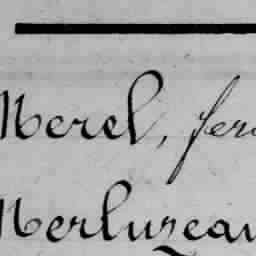 Merel, fer
Merluzeau